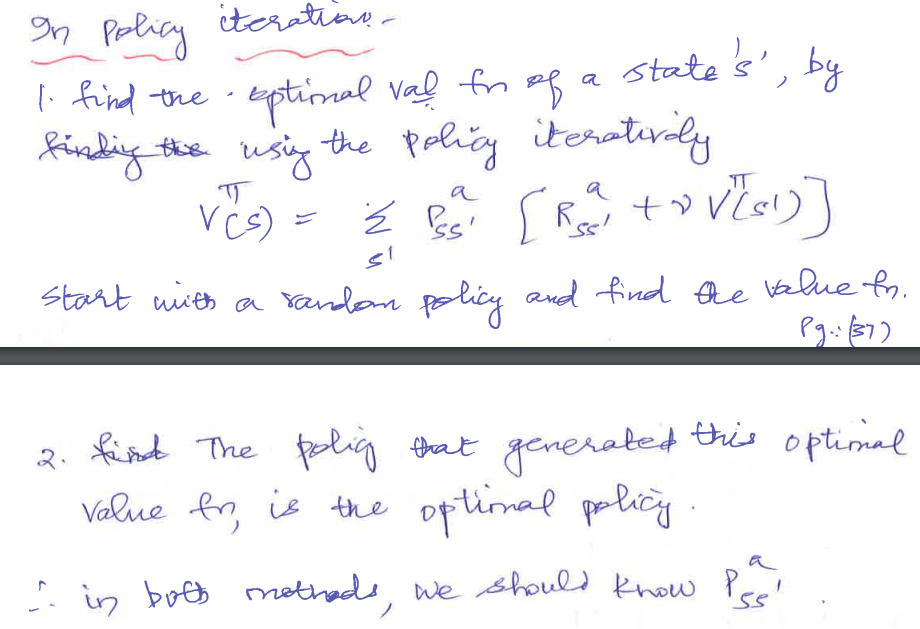 In Policy iteration:-
1. find the optimal val fn of a state 's', by
finding the using the policy iteratively
V^π(s) = Σ_{s'} P^a_{ss'} [R^a_{ss'} + γ V^π(s')]
start with a random policy and find the value fn.
Pg.:(37)
2. find The policy that generated this optimal
value fn, is the optimal policy.
∴ in both methods, we should know P^a_{ss'}.